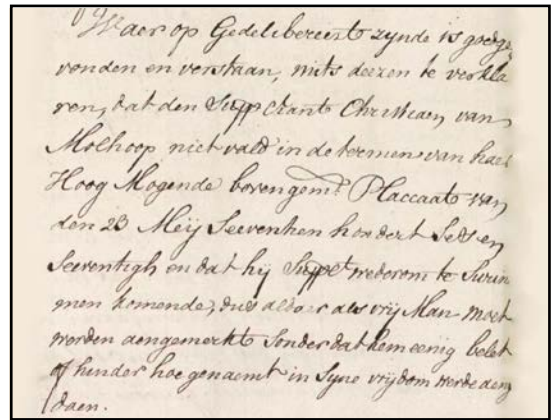 Waer op Gedelibereert zynde is goedge
vonden en verstaan, mits deezen te verkla
ren, dat den Supp.ctiant Christiaen van
Molhoop niet vald in de termen van haer
Hoog Mogende bovengem.e Placcaate van
den 23 Meij Seeventien hondert Sets en
Seeventigh en dat hij Supp.t wederom te Surin
men komende, dus aldaer als vrij Man moet
worden aengemerkt Sonder dat hem eenig belet
of hinder hoe genaemt in Syne vrijdom werde aeng
daen.